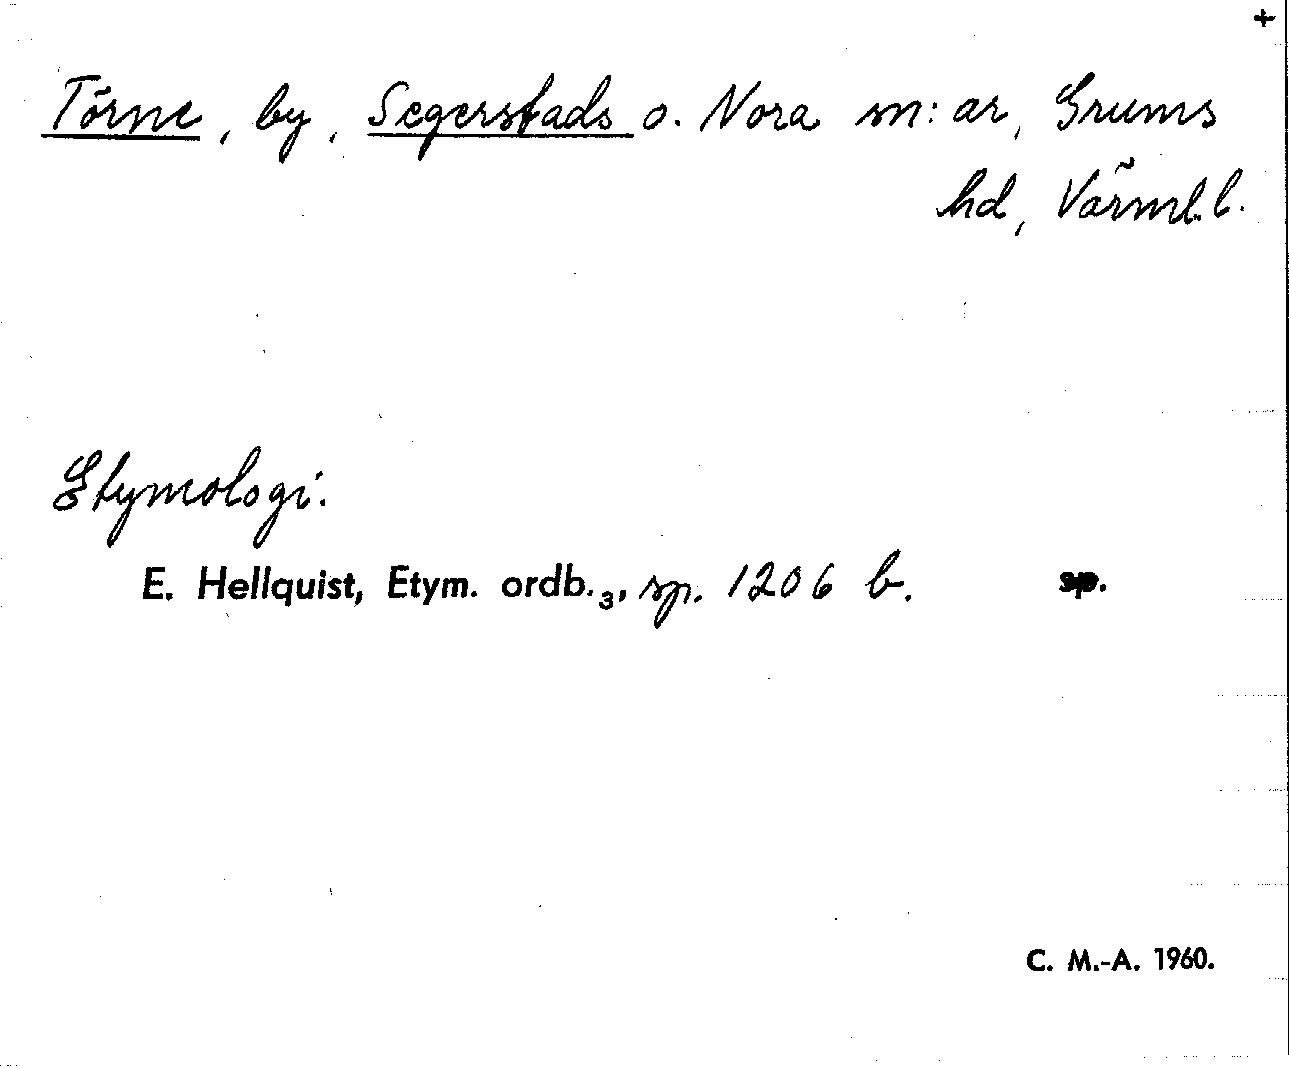 +
Törne, by, Segerstads o. Nora m:ar, Grums
hd, Värml. l.
Etymologi.
E. Hellquist, Etym. ordb.₃, sp. 1206 b. sp.
C. M.-A. 1960.